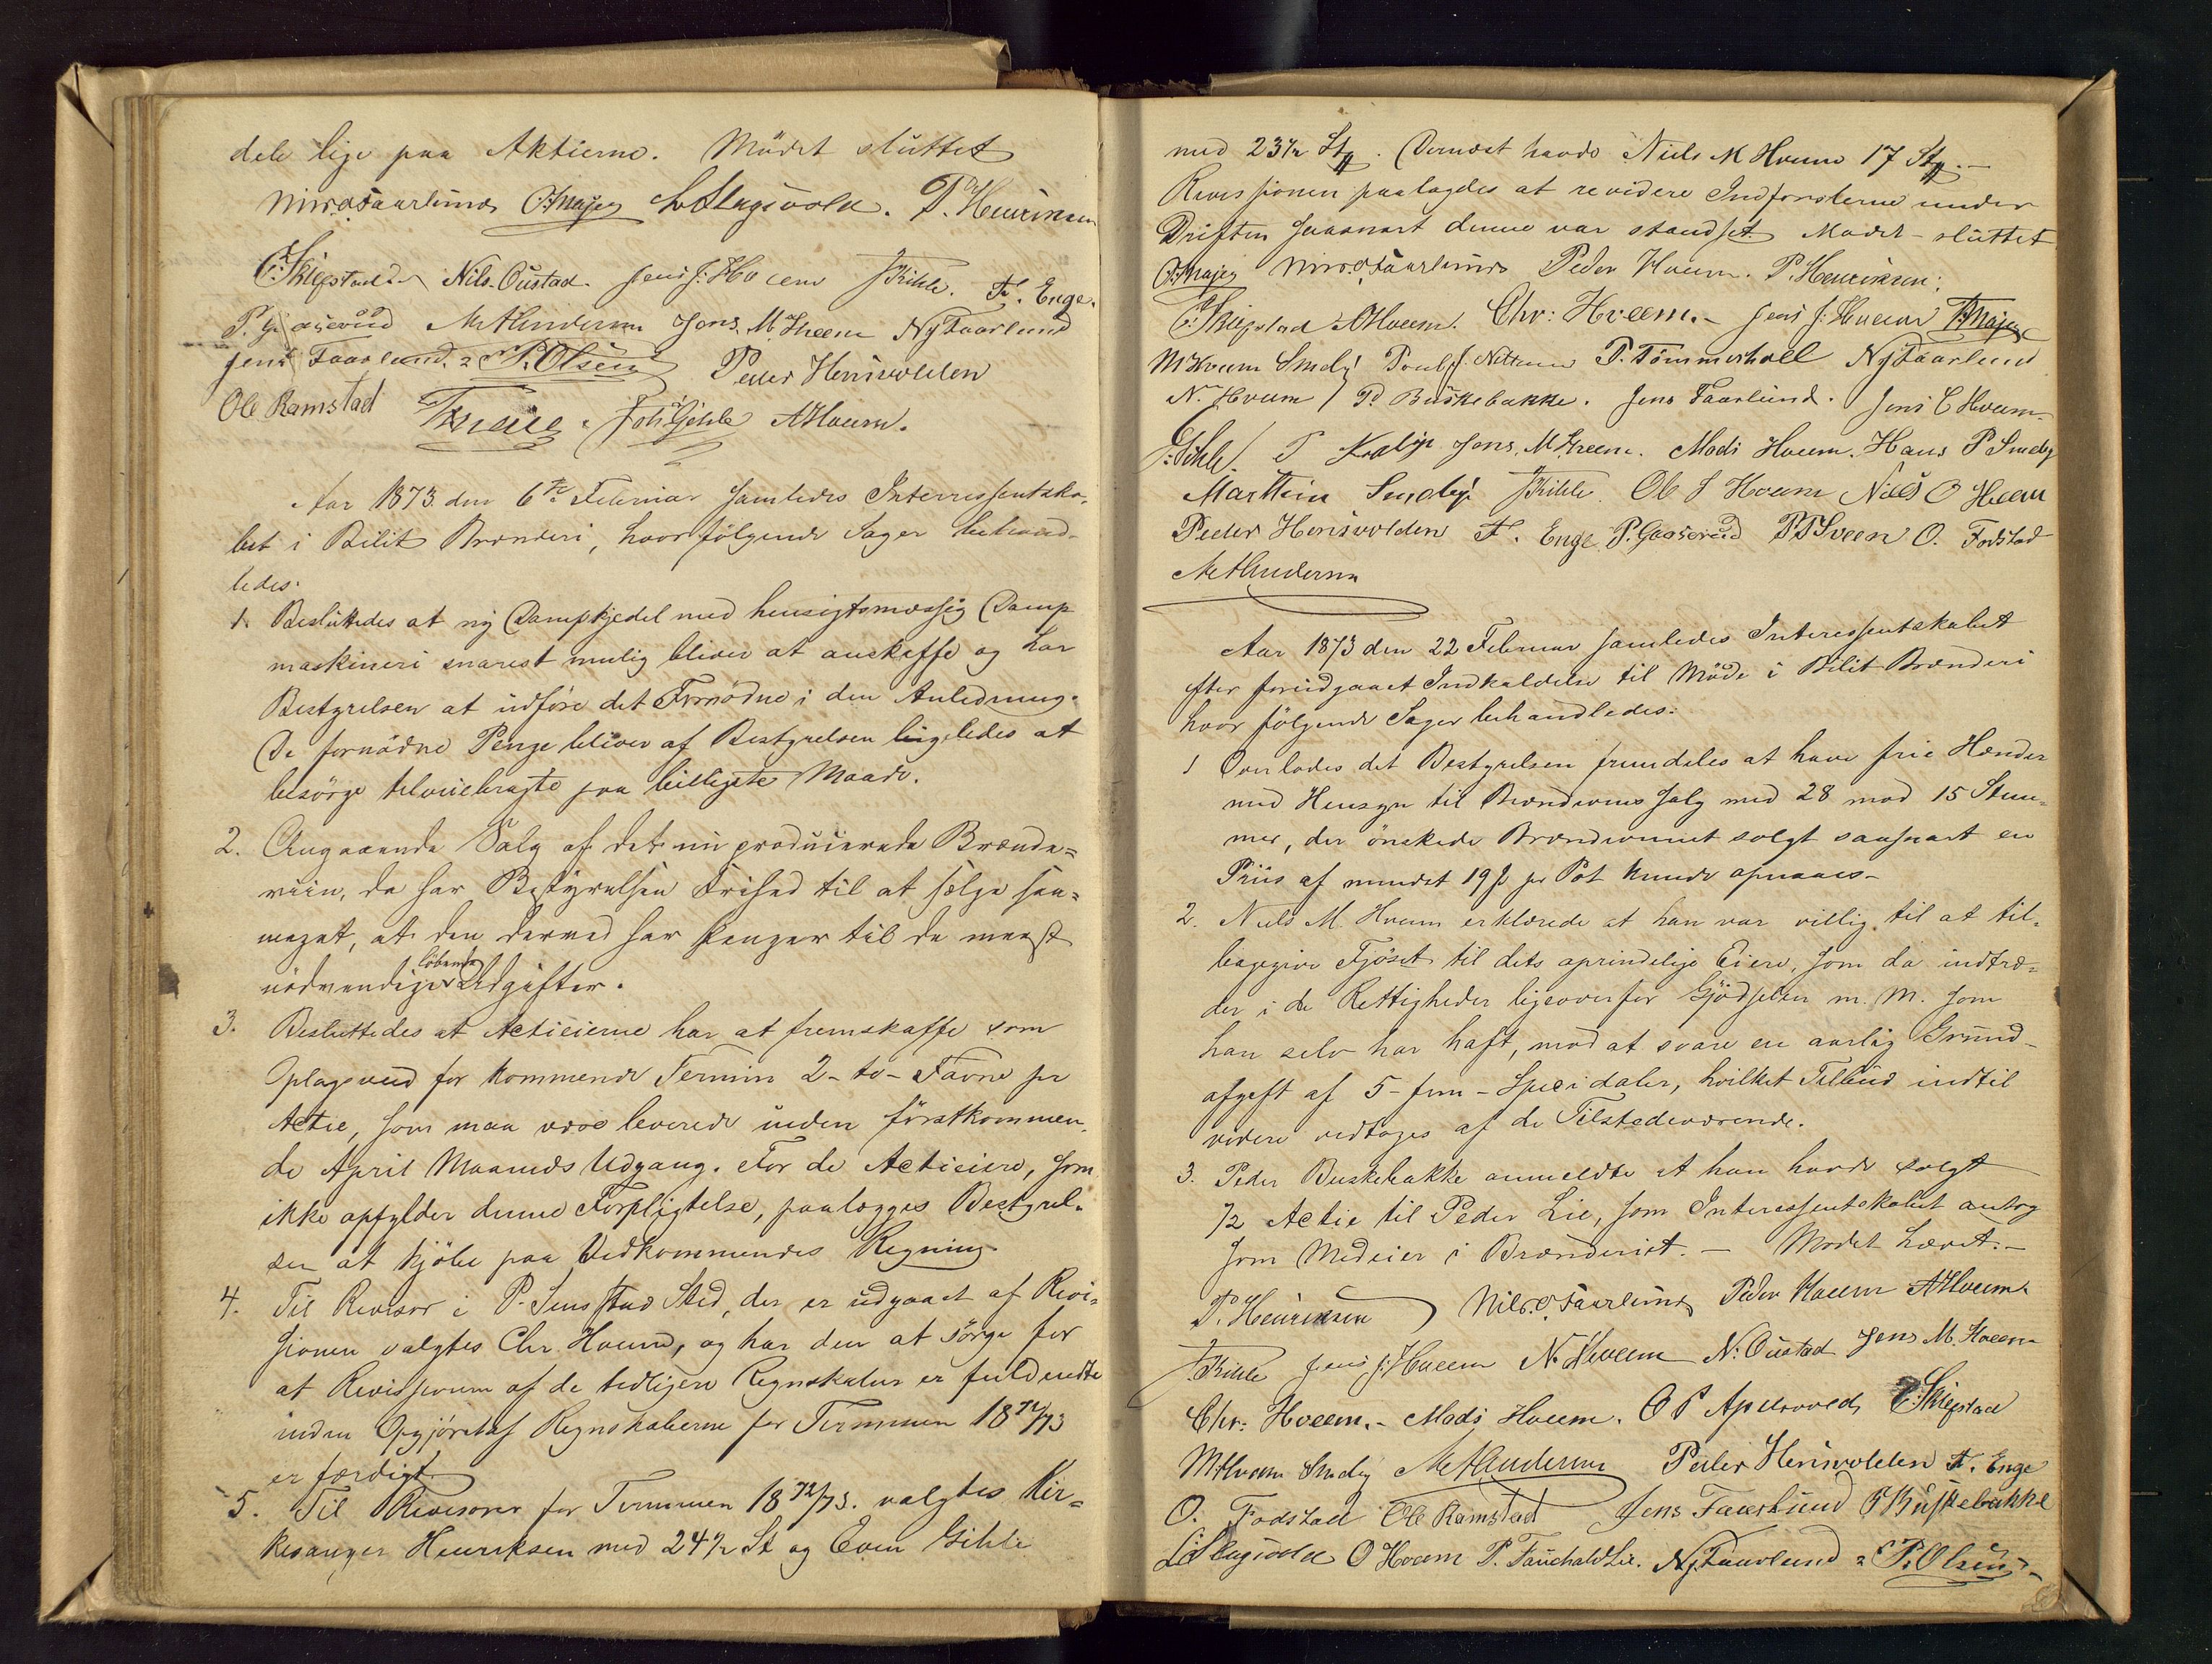 dele lige paa Aktierne. Mödet slüttet
O. Majer L. Slagsvold. P. Henriksen
E. Skiepstad Nils Oüstad. Jens J: Hveem J Kihle. F. Enge.
P. Gaaserüd M Andersen Jens. M. Hveem Nj Faarlund
Jens Faarlund. P. Olsen Peder Henisvolden
Ole Ramstad Joh: Gihle A Hveem.
Aar 1873 den 6te Februar samledes Interessentska-
bet i Bilit Brænderi, hvor fölgende Sager behand-
ledes.
1. Beslüttedes at ny Dampkjedel med hensigtsmæssig Damp
maskineri snarest mulig bliver at anskaffe og har
Bestyrelsen at üdföre det Fornödne i den Anledning.
De fornödne Penge bliver af Bestyrelsen ligeledes at
besörge tilveiebragte paa billigste Maade.
2. Angaaende Salg af det nu producerede Brænde=
viin, da har Bestyrelsen Frihed til at sælge saa=
meget, at den derved har Penger til de meest
nödvendige löbende Udgifter.
3. Besluttedes at Actieierne har at fremskaffe som
Oplagsved for kommende Termin 2- to- Favne pr
Actie, som maa være leverede inden förstkommen-
de April Maaneds Udgang. For de Actieiere, som
ikke opfylder denne Forpligtelse, paalægges Bestyrel-
sen at kjöbe paa Vedkommendes Regning.
4. Til Revisor i P. Sens stad Sted, der er üdgaaet af Revi-
sionen valgtes Chr Hveem, og har den at sörge for
at Revissionen af de tidligere Regnskaber er fuldendte
inden Opgjöret af Regnskaberne for Terminen 1872/73
er færdigt.
5. Til Revisorer for Terminen 1872/73. valgtes Kir-
kesanger Henriksen med 24 1/2 St og Even Gihle
med 23 1/2 St. Dernæst havde Niels M Hveem 17 St. -
Revissionen paalagdes at revidere Indförslerne under
Driften saasnart denne var standset Mödet slüttet
O. Majer Nils O Faarlund Peder Hveem. P. Henriksen:
E. Skiepstad A Hveem. Chr: Hveem. - Jens J: Hveem
M Hveem Smeby P. Tömmerhoel Nj Faarlund
N. Hveem P. Büskebakke. Jens Faarlund. Jens E Hveem
E. Gihle. Jens. M Hveem. Mads Hveem. Hans P Smeby
Marttin Smeby J Kihle. Ole J Hveem Niels O Hveem
Peder Henisvolden F. Enge P. Gaaserüd P P Sveen O. Fodstad
M Andersen
Aar 1873 den 22 Februar samledes Interessentskabet
efter forudgaaet Indkaldelse til Möde i Bilit Brænderi
hvor fölgende Sager behandledes:
1 Overlodes det Bestyrelsen fremdeles at have frie Hænder
med Hensyn til Brændevins Salg med 28 mod 15 Stem-
mer, der önskede Brændevinet solgt saasnart en
Priis af mindst 19 ß pr Pot kunde opnaaes -
2. Niels M. Hveem erklærede at han var villig til at til-
bagegive Fjöset til dets oprindelige Eiere, som da indtræ-
der i de Rettigheder ligeoverfor Gjödselen m. M. som
han selv har haft, mod at svare en aarlig Grund-
afgift af 5- fem - Speci daler, hvilket Tilbud indtil
videre vedtages af de Tilstedeværende.
3. Peder Buskebakke anmeldte at han havde solgt
1/2 Actie til Peder Lie, som Interessentskabet antog
som Medeier i Brænderiet. - Mödet hævet. -
P. Henriksen Nils. O Faarlund Peder Hveem A Hveem.
J Kihle Jens J: Hveem N. Hveem N. Oüstad Jens M. Hveem
Chr: Hveem. - Mads Hveem. O P Apelsvold, E. Skiepstad
M Hveem Smeby M Andersen Peder Henisvolden F. Enge
O. Fodstad Ole Ramstad Jens Faarlund P Büskebakke
L. Slagsvold O Hveem P. Fauchald Lie. Nj. Faarlund P. Olsen